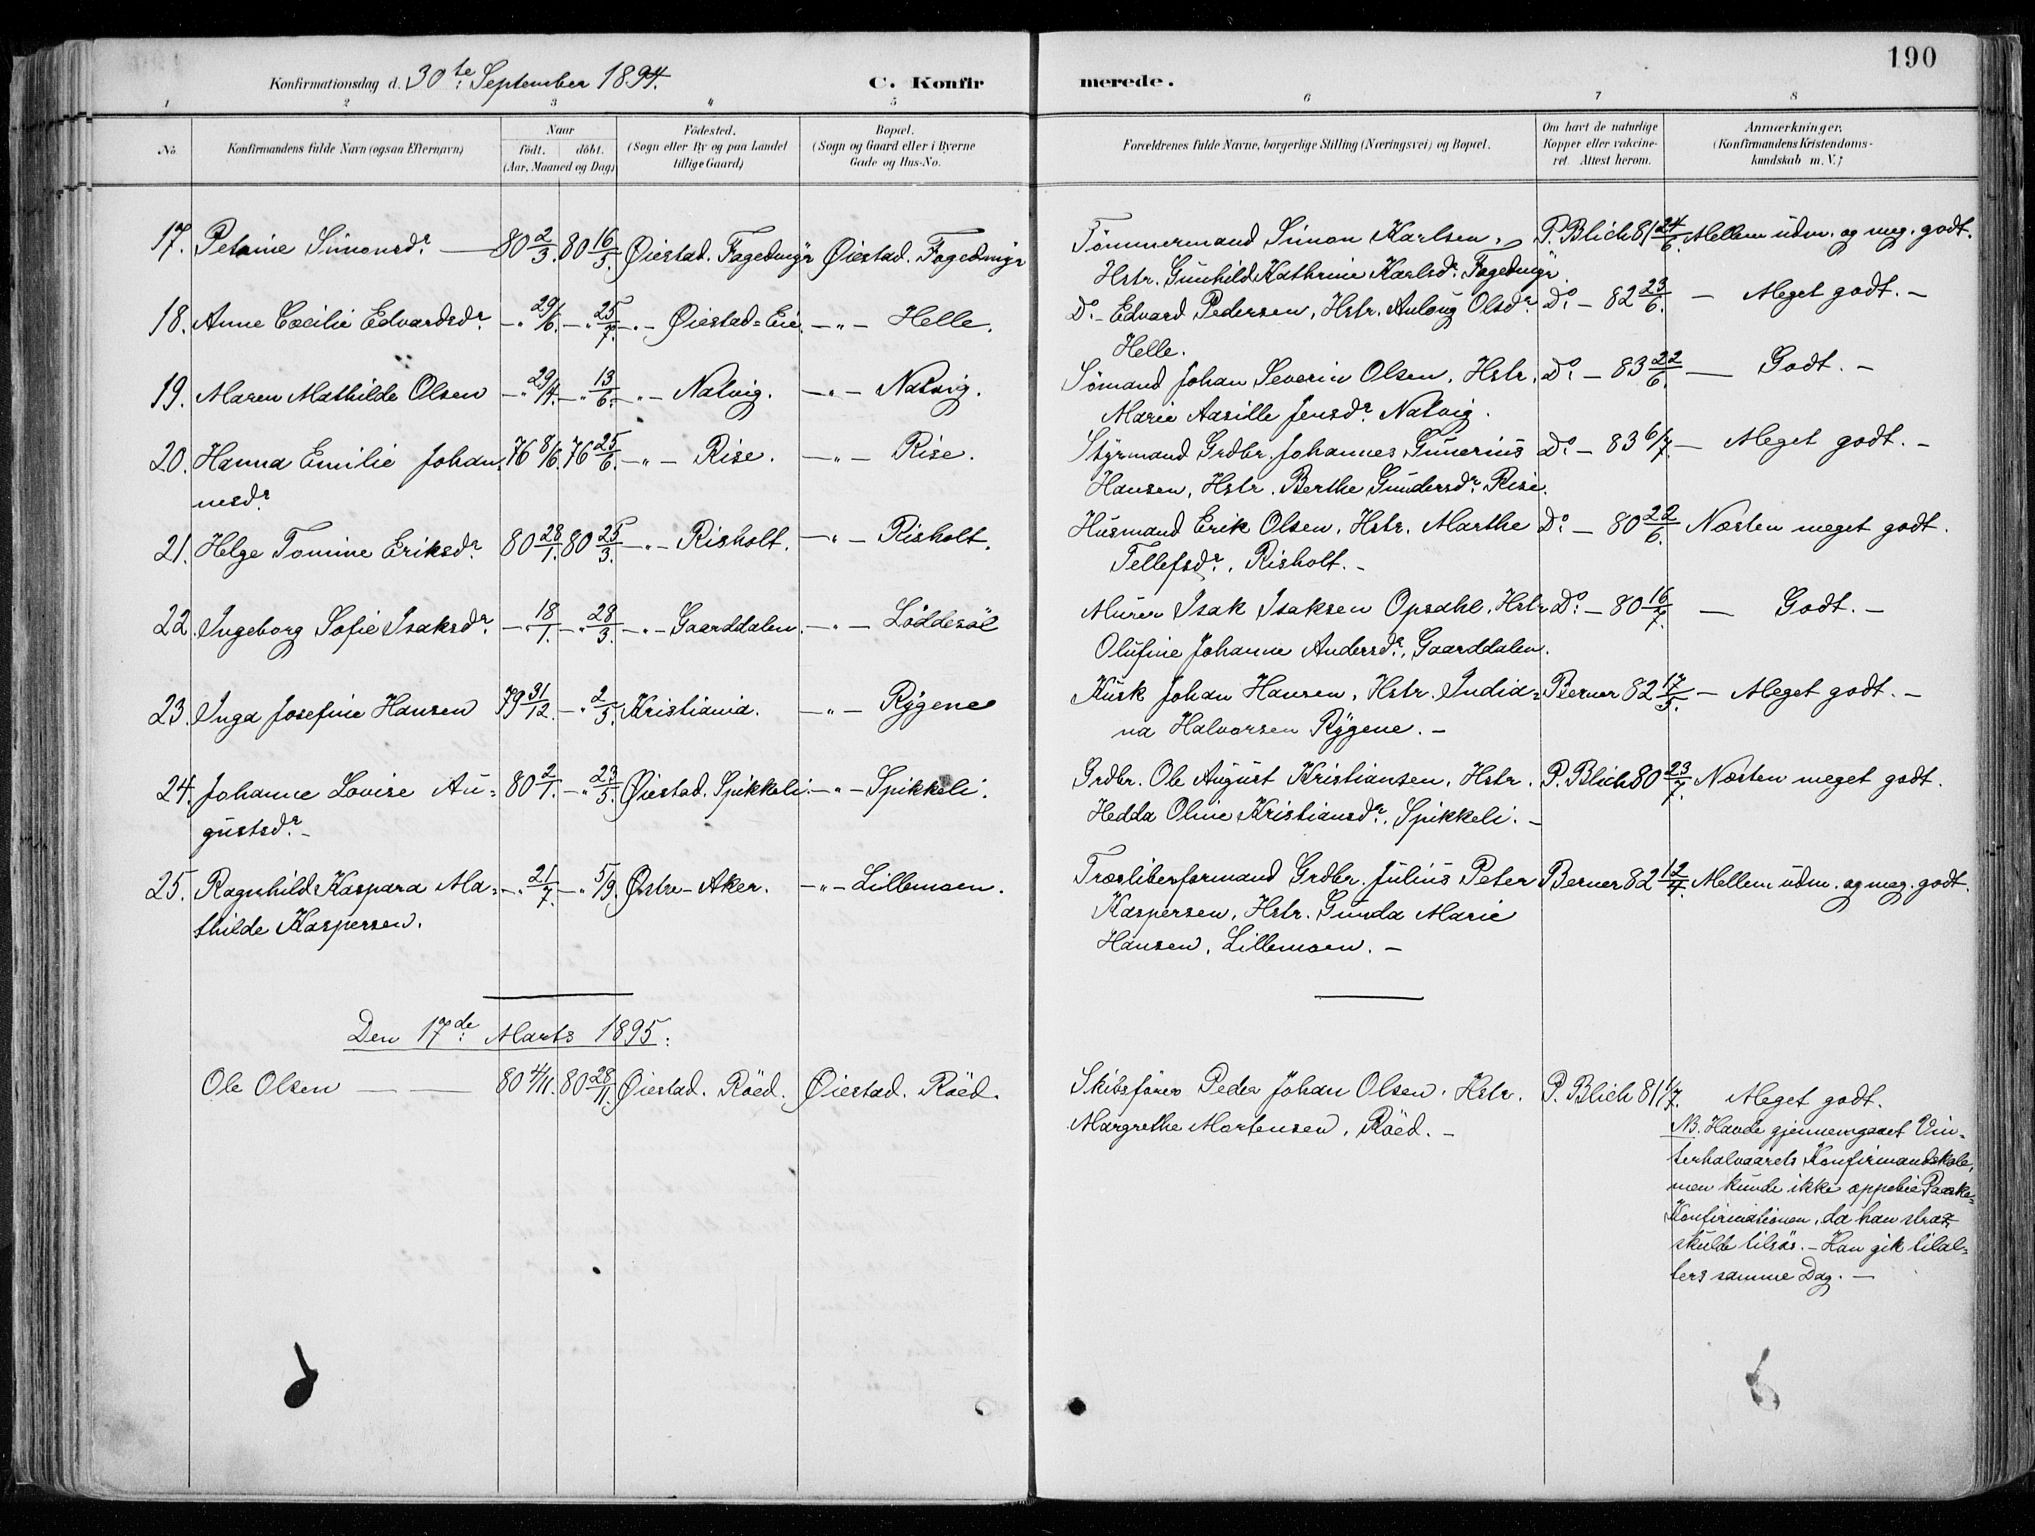 190
Konfirmationsdag d. 30te September 1894. C. Konfirmerede.
1 2 3 4 5 6 7 8
No. Konfirmandens fulde Navn (ogsaa Efternavn) Naar født. døbt. (Aar, Maaned og Dag) Fødested. (Sogn eller By og paa Landet tillige Gaard) Bopæl. (Sogn og Gaard eller i Byerne Gade og Hus-No. Forældrenes fulde Navne, borgerlige Stilling (Næringsvei) og Bopæl. Om havt de naturlige Kopper eller vakcineret. Attest herom. Anmærkninger. (Konfirmandens Kristendomskundskab m. V.)
17. Petrine Simonsdr — 80 2/3. 80 16/5. Øiestad. Fagedmyr Øiestad. Fagedmyr Tømmermand Simon Karlsen, P. Blich 81 24/6. Mellem udm. og meg. godt.
Hstr. Gunhild Kathrine Karlsdr. Fagedmyr
18. Anne Cæcilie Edvardsdr. -"- 29/6. -"- 25/7. -"- Øiestad=Eie. -"- Helle. Do - Edvard Pedersen, Hstr. Aulaug Olsdr. Do. - 82 23/6. - Meget godt. -
Helle.
19. Maren Mathilde Olsen -"- 29/4. -"- 13/6. -"- Natvig. -"- Natvig. Sømand Johan Severin Olsen, Hstr. Do. - 83 22/6. - Godt. -
Marie Aasille Jensdr. Natvig.
20. Hanna Emilie Johan 76 8/6. 76 25/6. -"- Rise. -"- Rise. Styrmand Grdbr. Johannes Gunerius Do - 83 6/7. - Meget godt. -
nesdr. Hansen, Hstr. Berthe Gundersdr. Rise.
21. Helge Tomine Eriksdr. 80 28/1. 80 25/3. -"- Risholt. -"- Risholt. Husmand Erik Olsen, Hstr. Marthe Do. - 80 22/6. Næsten meget godt.
Tellefsdr., Risholt. -
22. Ingeborg Sofie Isaksdr. -"- 18/1. -"- 28/3. -"- Gaarddalen. -"- Løddesøl Murer Isak Isaksen Opsahl, Hstr. Do. - 80 16/7. - Godt. -
Olufine Johanne Andersdr., Gaarddalen.
23. Inga Josefine Hansen 79 31/12. -"- 2/5. Kristiania. -"- Rygene Kusk Johan Hansen, Hstr. India= Berner 82 17/5. - Meget godt. -
na Halvorsen Rygene. -
24. Johanne Lovise Au= 80 2/1. -"- 23/5. Øiestad. Spikkeli -"- Spikkeli. Grdbr. Ole August Kristiansen, Hstr. P. Blich 80 23/7. Næsten meget godt.
gustsdr. - Hedda Oline Kristiansdr., Spikkeli. -
25. Ragnhild Kaspara Ma= -"- 21/7. -"- 5/9. Østre-Aker. -"- Lillemoen. Træsliberformand Grdbr. Julius Peter Berner 82 12/7. Mellem udm. og meg. godt.
thilde Kaspersen. Kaspersen, Hstr. Gunda Marie
Hansen, Lillemoen. -
Den 17de Marts 1895.
Ole Olsen — 80 4/11. 80 28/11. Øiestad. Røed. Øiestad. Røed. Skibsfører Peder Johan Olsen, Hstr. P. Blich 81 1/7. Meget godt.
Margrethe Mortensen, Røed. -
NB. Havde gjennemgaaet Vin=
terhalvaarets Konfirmandskole,
men kunde ikke oppebie Paaske=
Konfirmationen, da han strax
skulde tilsøs. - Han gik tilal=
ters samme Dag. -